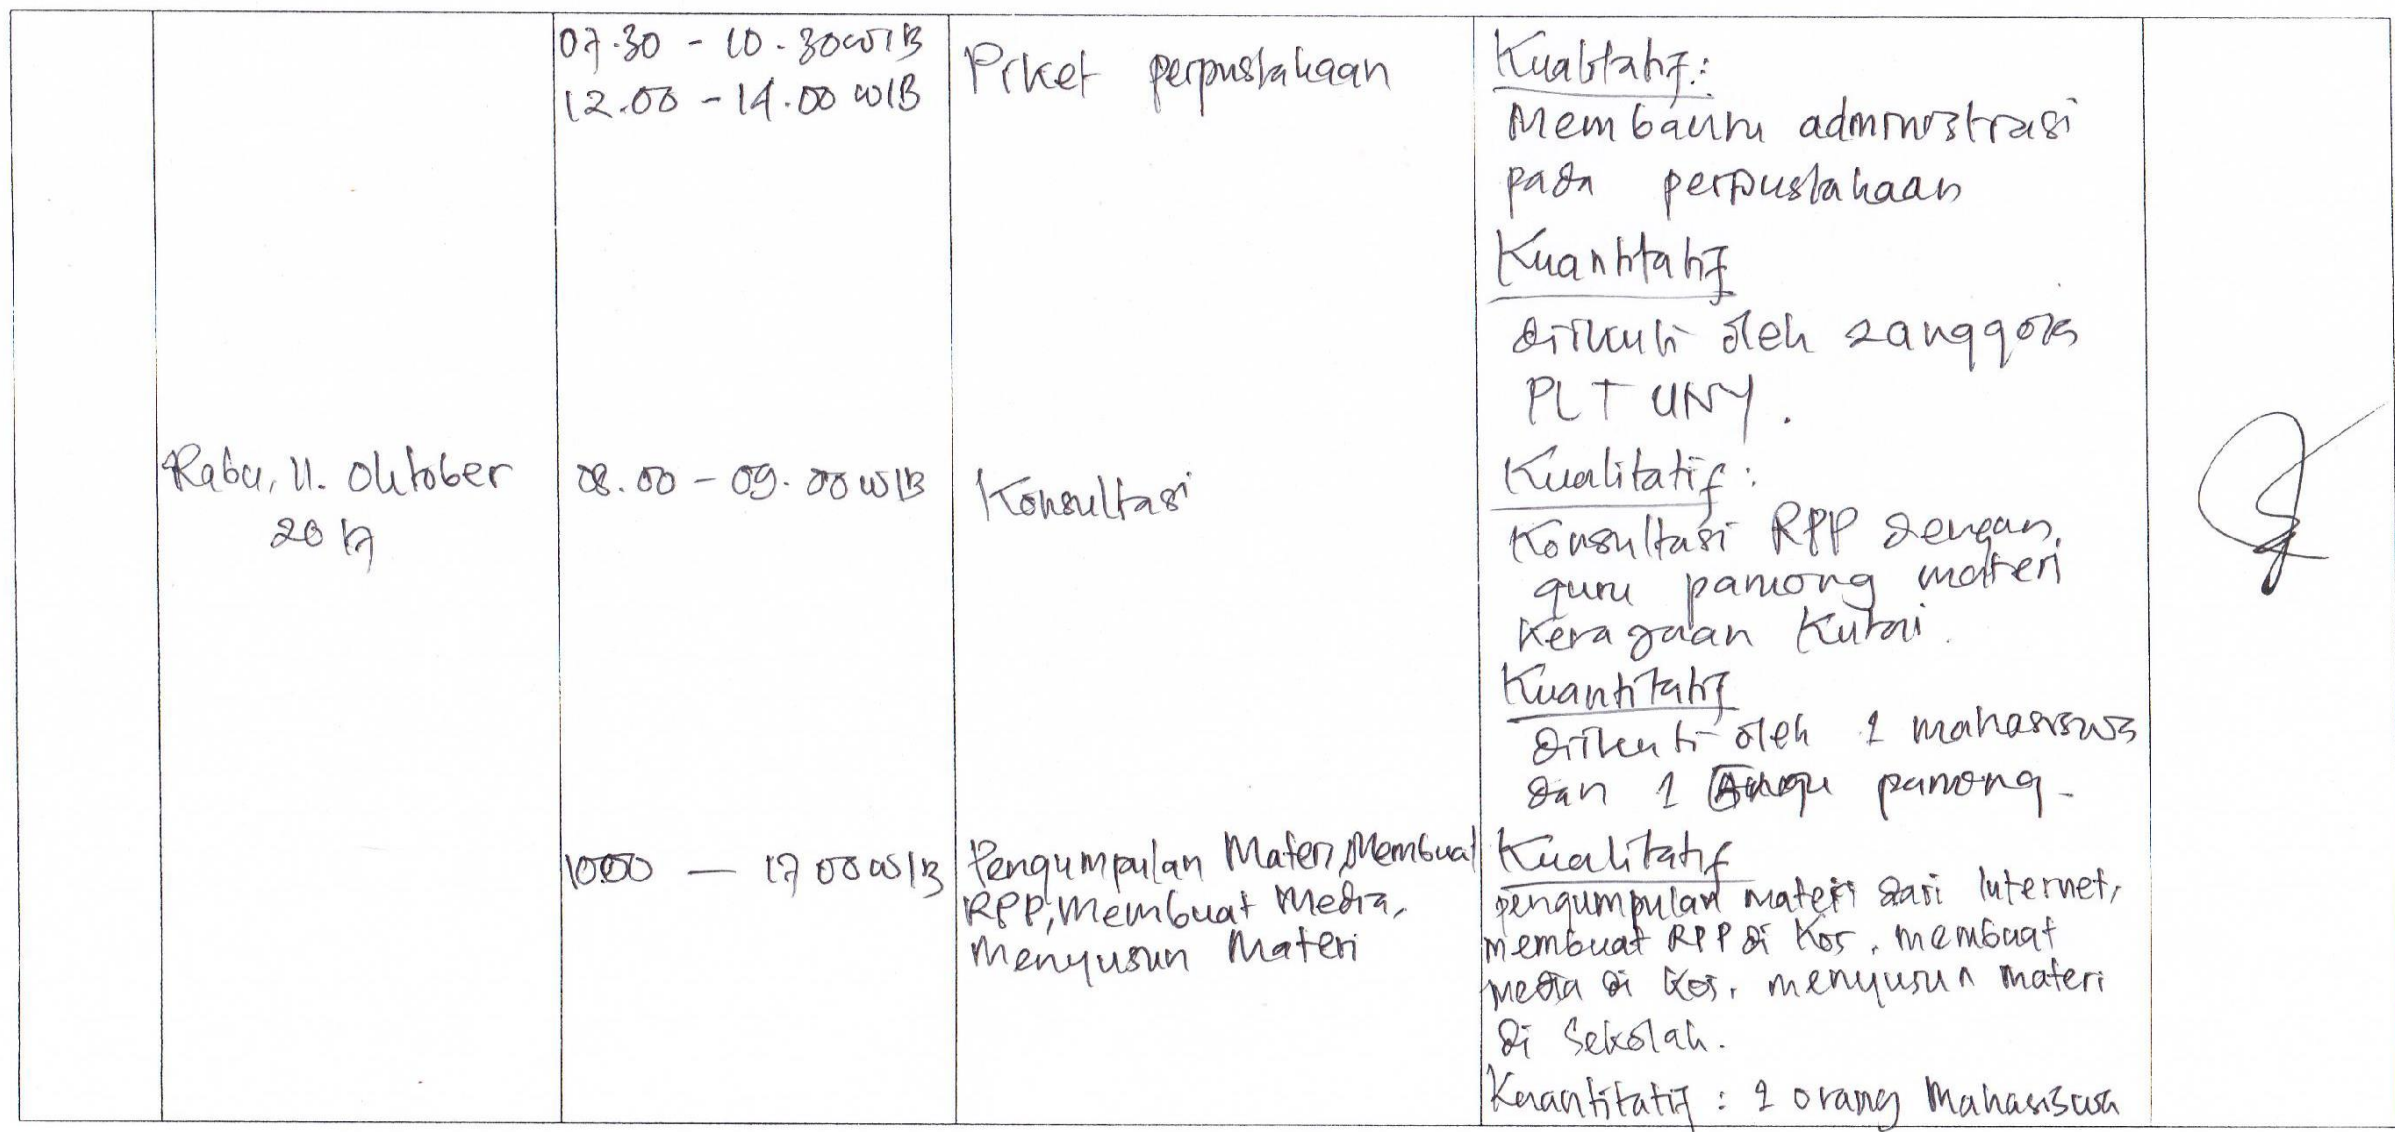 07.30 - 10.30 WIB
12.00 - 14.00 WIB
Piket perpustakaan
Kualitatif :
Membantu administrasi
pada perpustakaan
Kuantitatif
diikuti oleh 2 anggota
PLT UNY.
Rabu, 11. Oktober
2017
08.00 - 09.00 WIB
Konsultasi
Kualitatif :
Konsultasi RPP dengan
guru pamong materi
Kerajaan Kutai.
Kuantitatif
diikuti oleh 1 mahasiswa
dan 1 pamong.
10.00 — 17 00 WIB
Pengumpulan Materi, Membuat
RPP, Membuat Media,
Menyusun Materi
Kualitatif
pengumpulan materi dari Internet,
membuat RPP di Kos, membuat
media di Kos, menyusun materi
di Sekolah.
Kuantitatif : 1 orang Mahasiswa